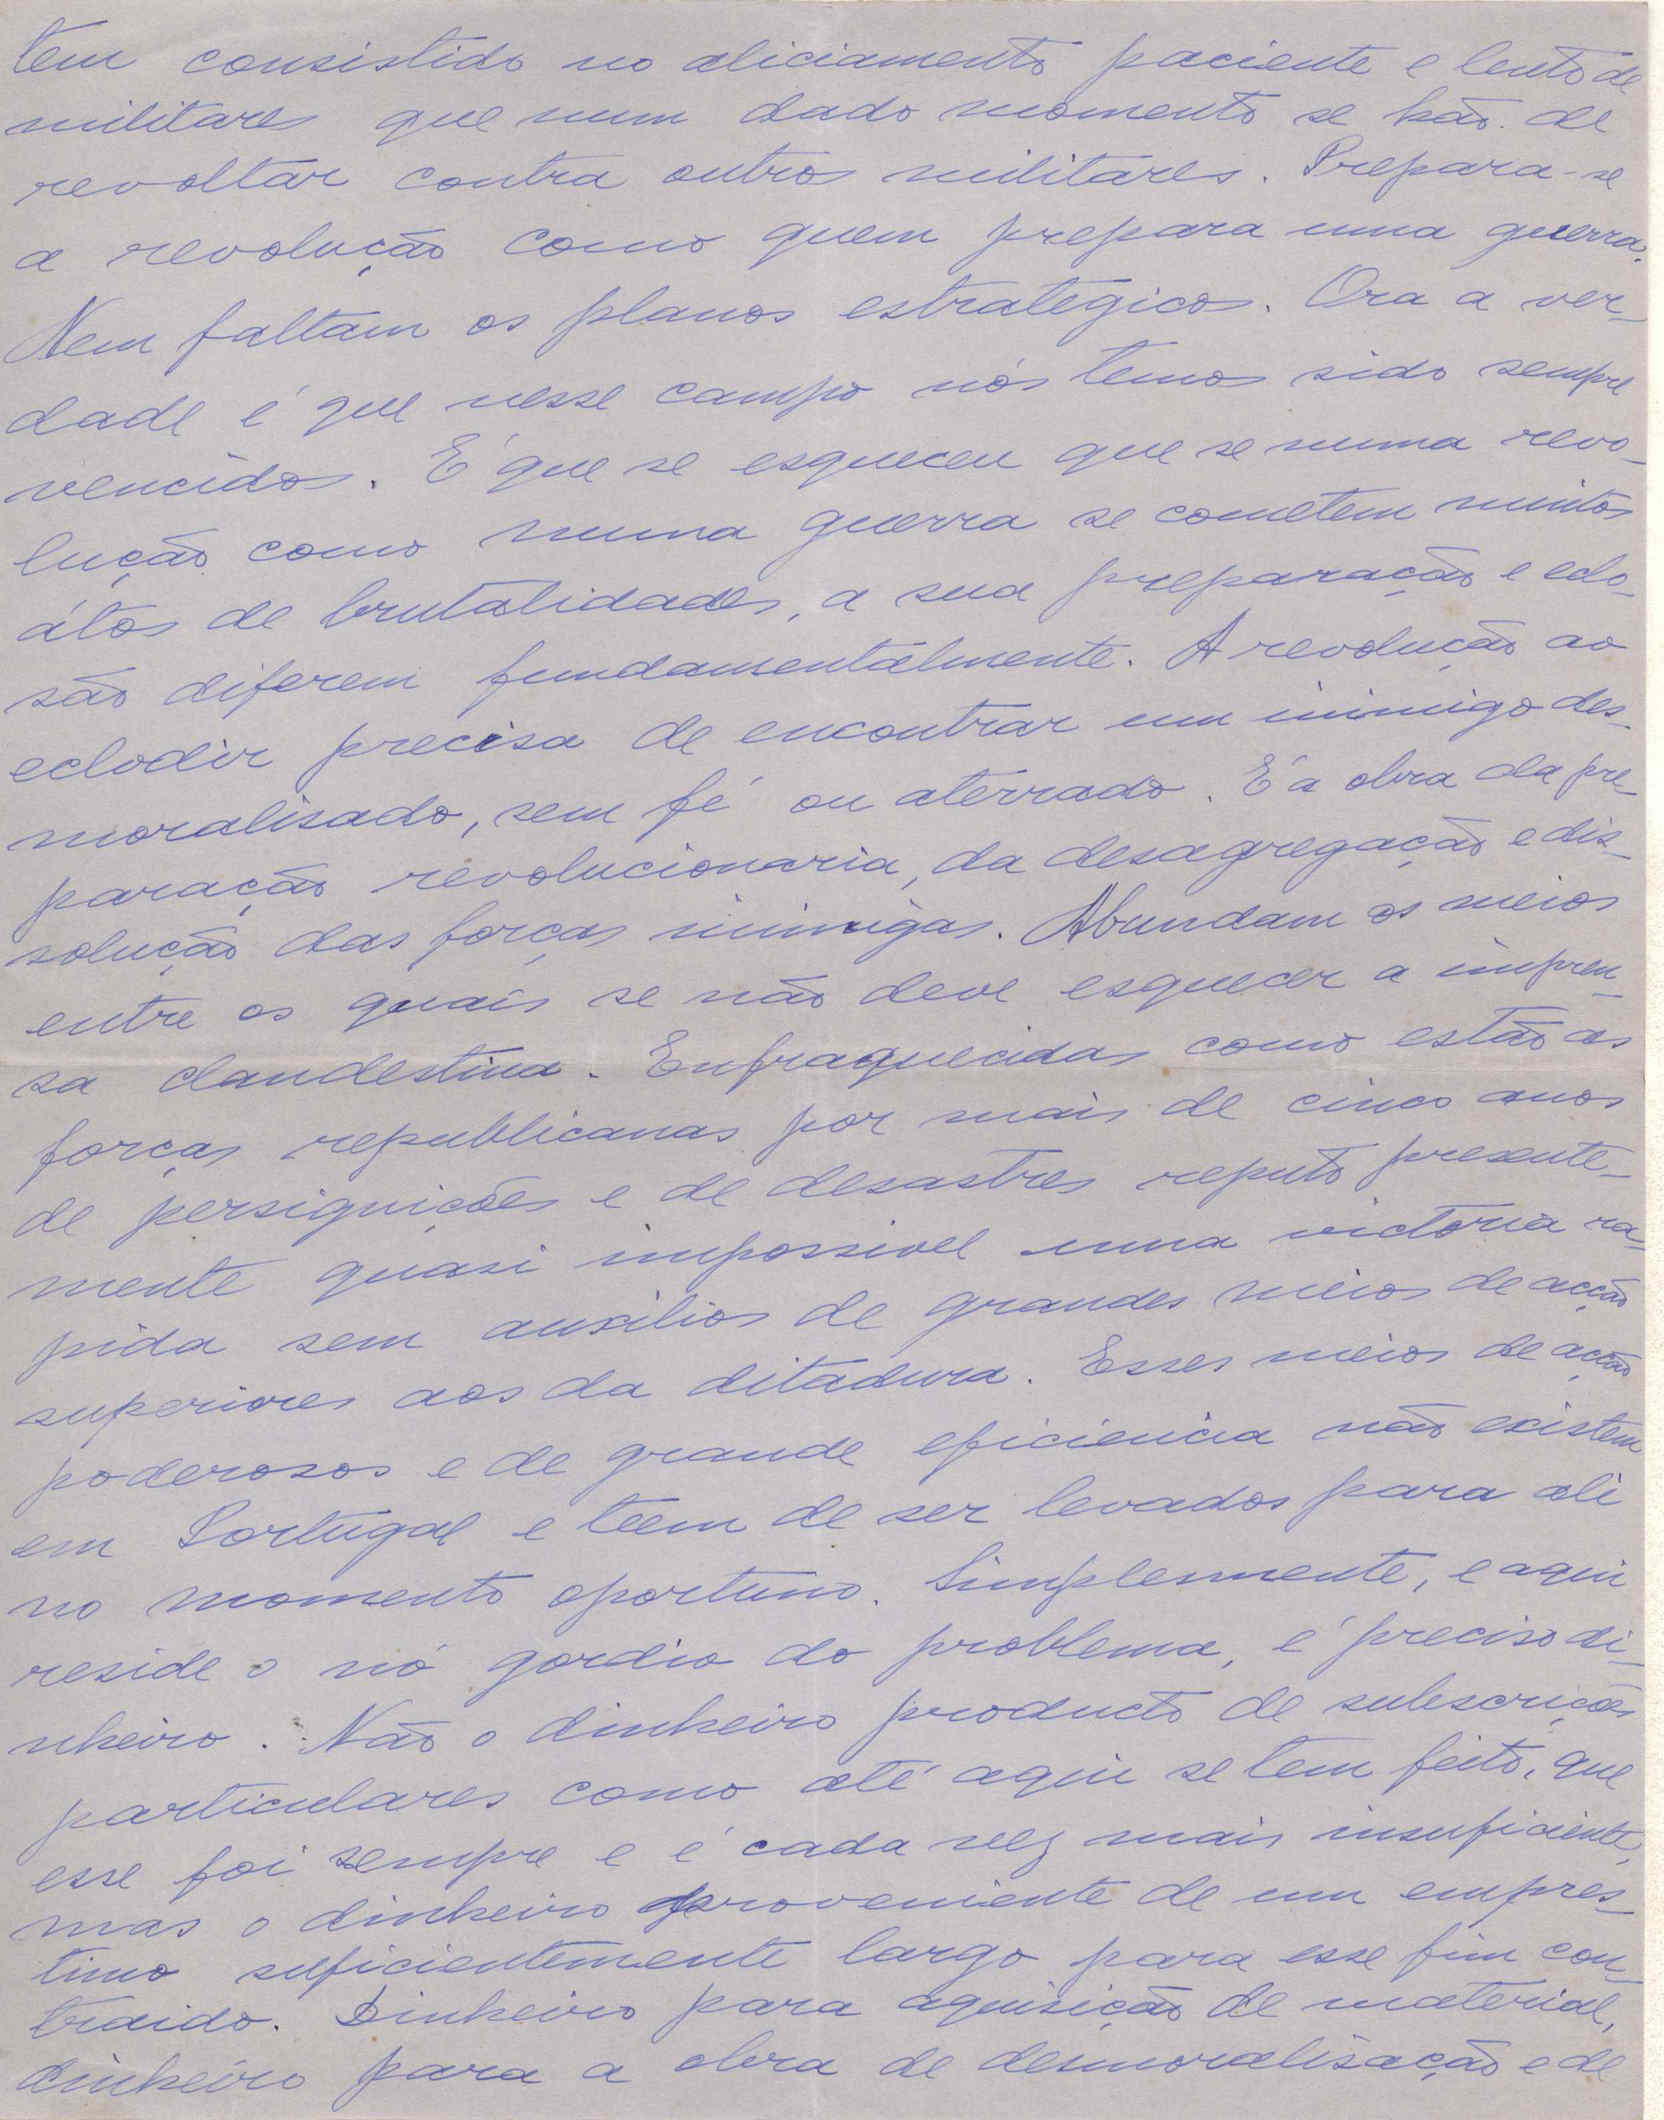 tem consistido no aliciamento paciente e lento de
militares que num dado momento se hão de
revoltar contra outros militares. Prepara-se
a revolução como quem prepara uma guerra.
Nem faltam os planos estrategicos. Ora a ver-
dade é que nesse campo nós temos sido sempre
vencidos. É que se esqueceu que se numa revo-
lução como numa guerra se cometem muitos
átos de brutalidades, a sua preparação e eclo-
são diferem fundamentalmente. A revolução ao
eclodir precisa de encontrar um inimigo des-
moralisado, sem fé ou aterrado. É a obra da pre-
paração revolucionaria, da desagregação e dis-
solução das forças inimigas. Abundam os meios
entre os quais se não deve esquecer a impren-
sa clandestina. Enfraquecidas como estão as
forças republicanas por mais de cinco anos
de persiguições e de desastres reputo presente-
mente quasi impossivel uma victoria ra-
pida sem auxilios de grandes meios de acção
superiores aos da ditadura. Esses meios de acção
poderosos e de grande eficiencia não existem
em Portugal e teem de ser levados para ali
no momento oportuno. Simplesmente, e aqui
reside o nó gordio do problema, é preciso di-
nheiro. Não o dinheiro producto de subscrições
particulares como até aqui se tem feito, que
esse foi sempre e é cada vez mais insuficiente,
mas o dinheiro proveniente de um empres-
timo suficientemente largo para esse fim con-
traido. Dinheiro para aquisição de material,
dinheiro para a obra de desmoralisação e de